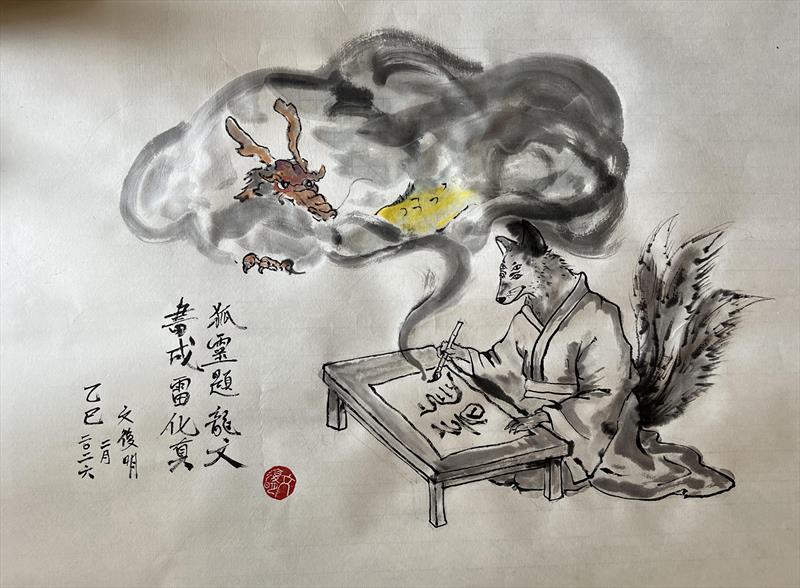 狐靈題龍文
書成雷化真
文後明
二月
乙巳二〇二六